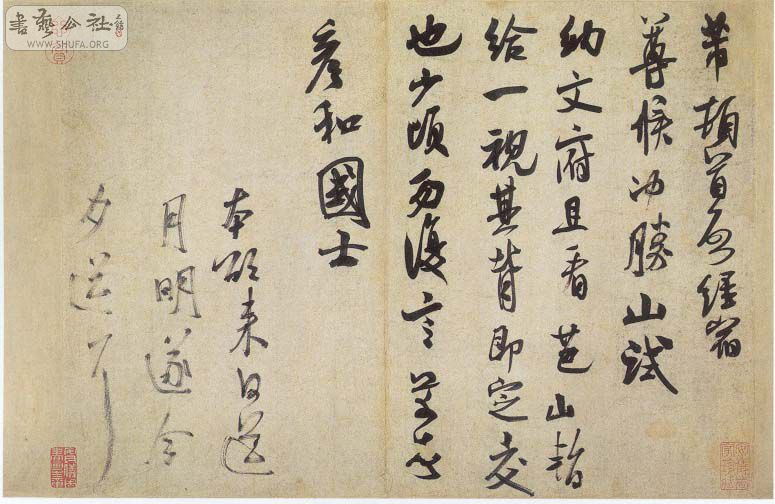 書藝公社
WWW.SHUFA.ORG
芾頓首啓經宿
尊候冲勝山試
納文府且看芭山暫
給一視其背即定交
也少頃勿復言芾頓首
彦和國士
本欲來日送
月明遂今
夕送耳